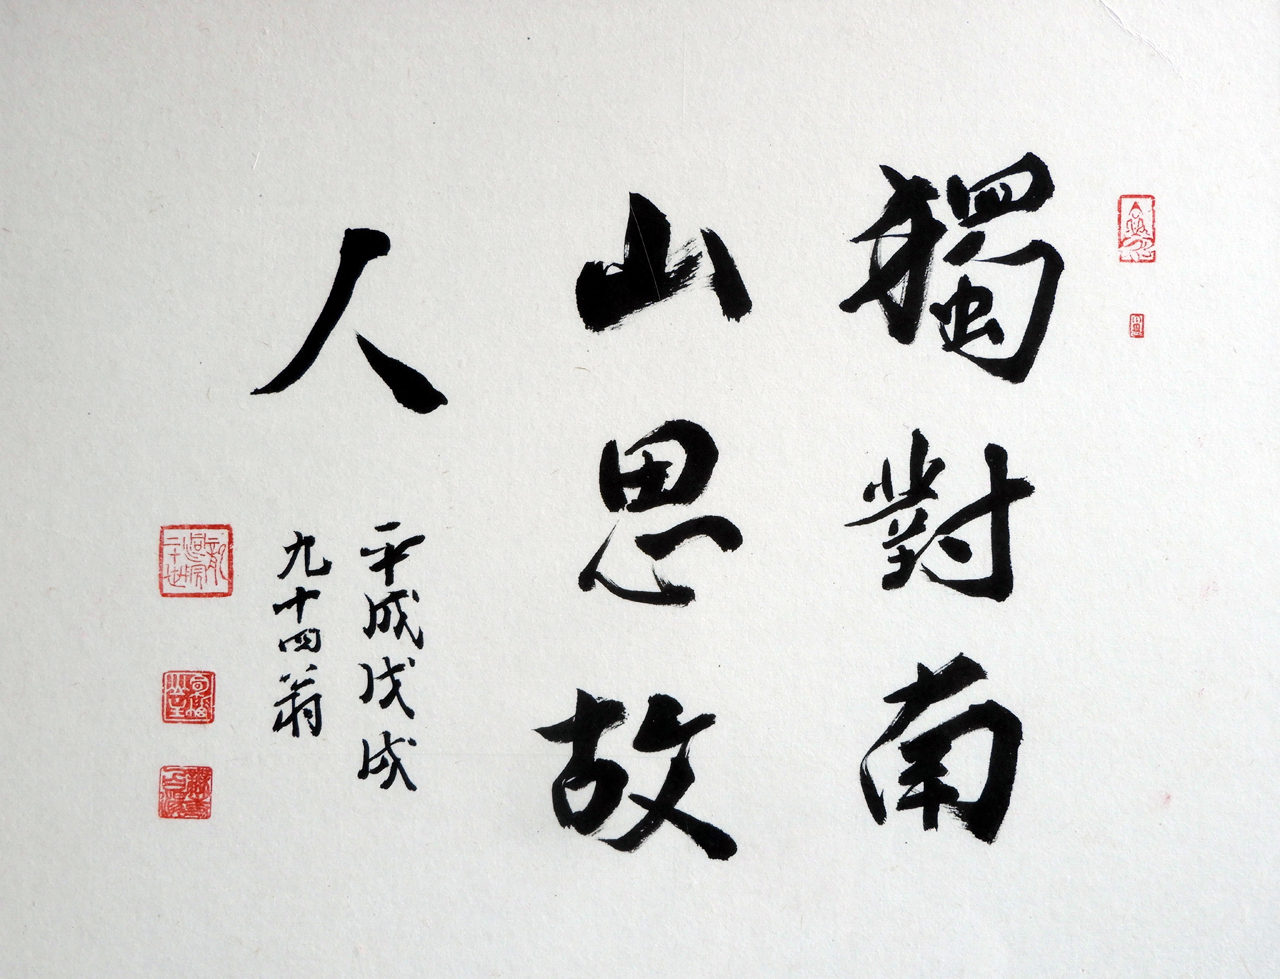 獨對南
山思故
人
平成戊戌
九十四翁